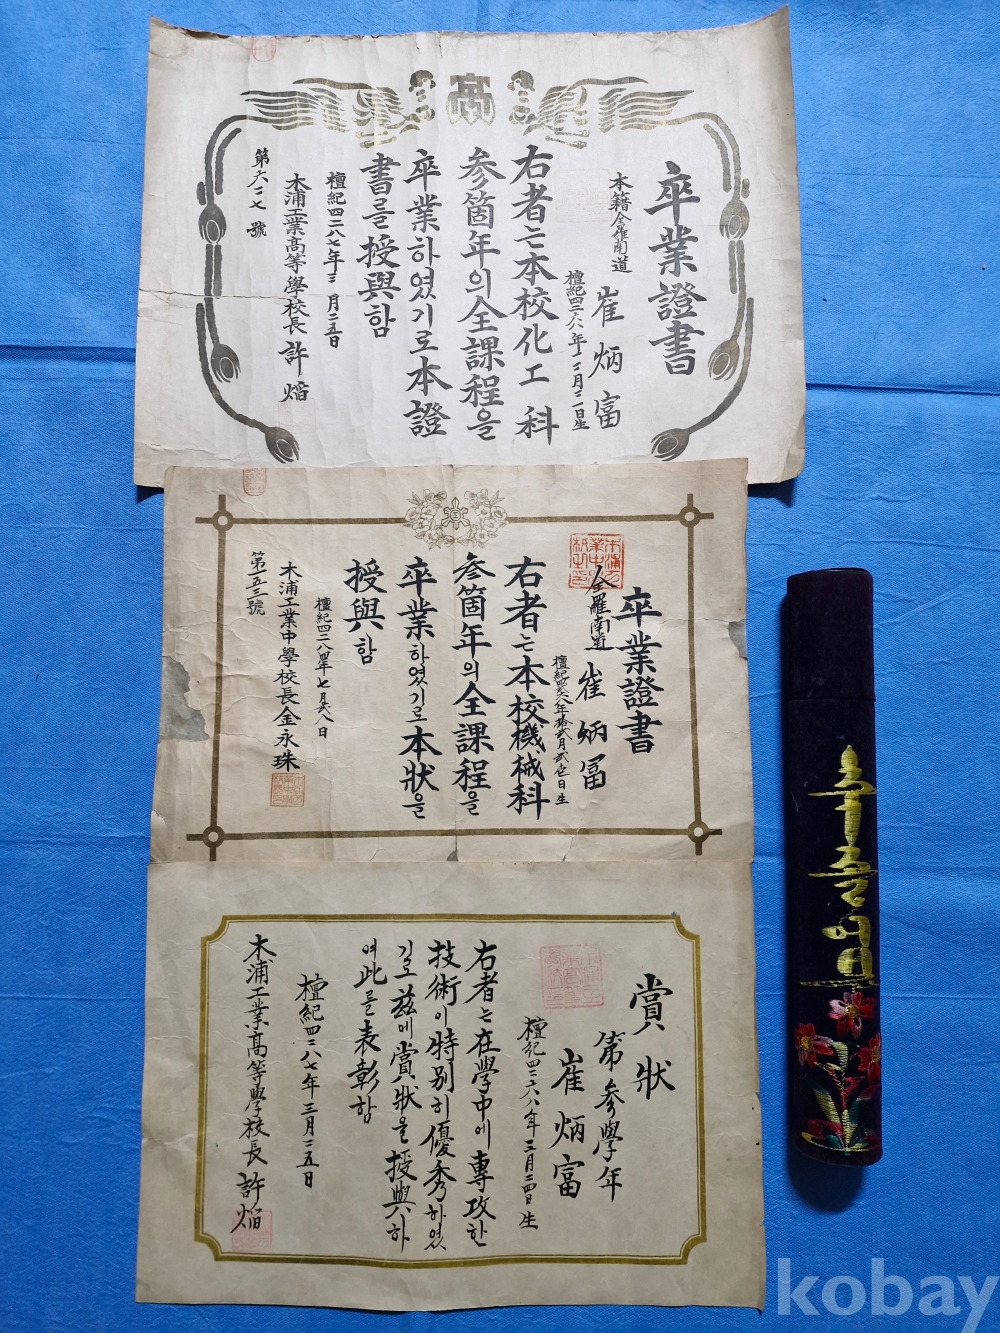 高
卒業證書
本籍全羅南道
崔炳富
檀紀四二六八年十二月二一日生
右者는本校化工科
参箇年의全課程을
卒業하였기로本證
書를授與함
檀紀四二八七年三月二五日
木浦工業高等學校長 許焰
第六二七號
卒業證書
全羅南道 崔炳富
右者는本校機械科
参箇年의全課程을
卒業하였기로本狀을
授與함
檀紀四二八四年七月貳八日
木浦工業中學校長金永珠
第一五三號
賞狀
第参學年
崔炳富
檀紀四二六八年三月二四日生
右者는在學中에專攻한
技術이特別히優秀하였
기로玆에賞狀을授與하
여此를表彰함
檀紀四二八七年三月二五日
木浦工業高等學校長 許焰
kobay